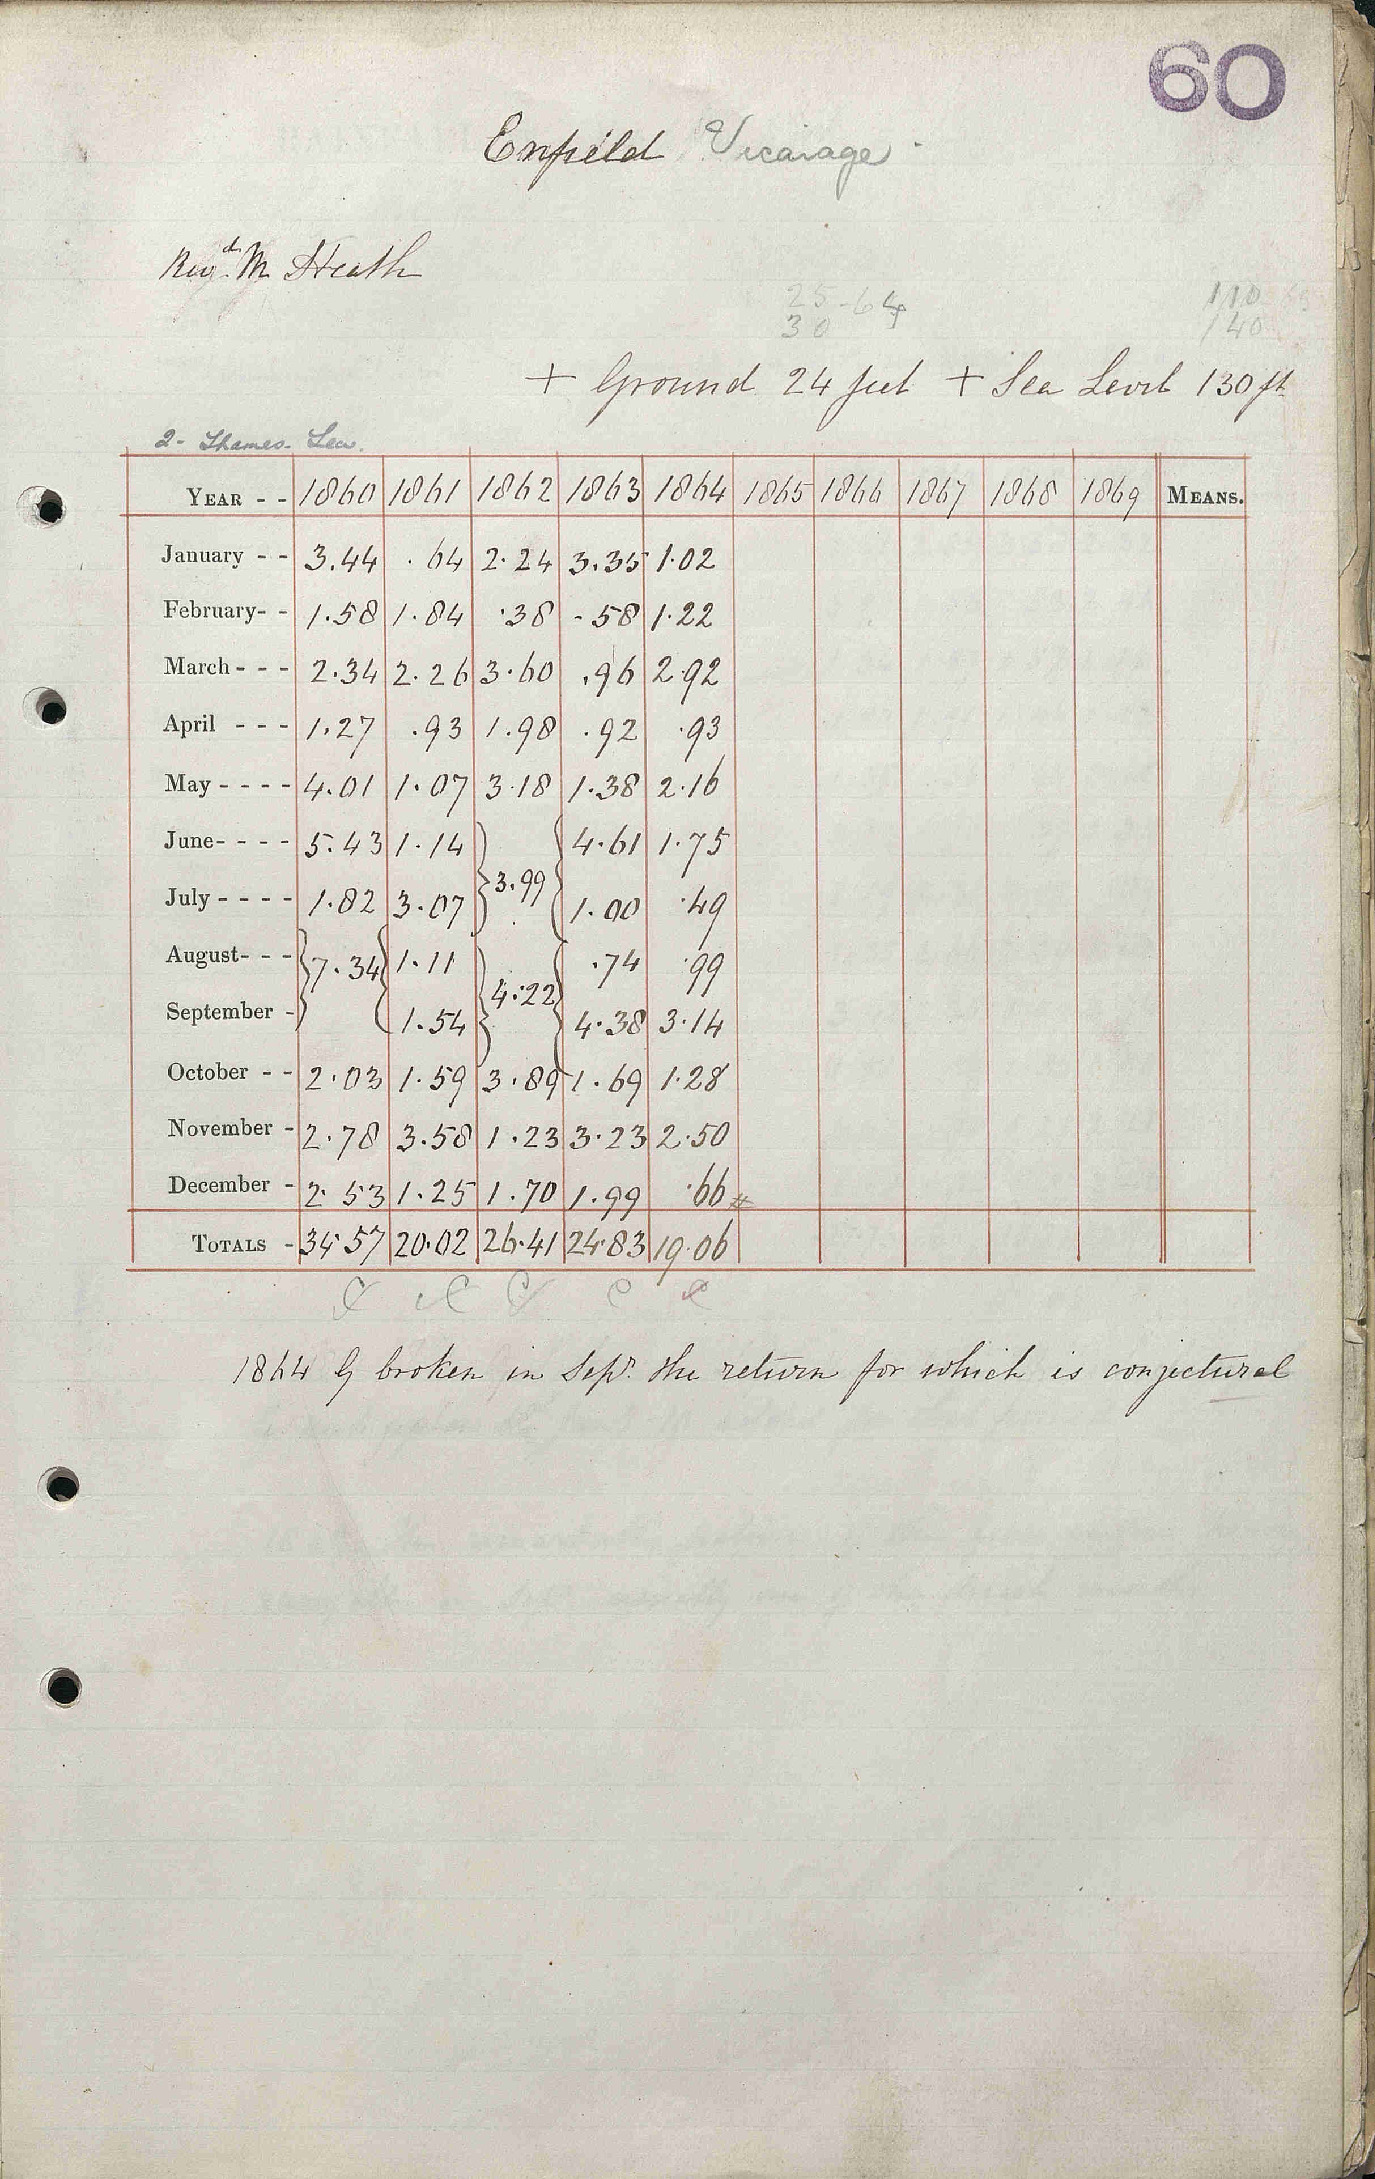 60
Enfield Vicarage
M Heath
25-64
30
110
140
+ Ground 24 feet + Sea Level 130 ft
2 - Thames - Lea.
YEAR - - 1860 1861 1862 1863 1864 1865 1866 1867 1868 1869 MEANS.
January - - 3.44 .64 2.24 3.35 1.02
February - - 1.58 1.84 .38 .58 1.22
March - - - 2.34 2.26 3.60 .96 2.92
April - - - 1.27 .93 1.98 .92 .93
May - - - - 4.01 1.07 3.18 1.38 2.16
June - - - - 5.43 1.14 } 3.99 { 4.61 1.75
July - - - - 1.82 3.07 1.00 .49
August - - - } 7.34 { 1.11 } 4.22 { .74 .99
September - 1.54 4.38 3.14
October - - 2.03 1.59 3.89 1.69 1.28
November - 2.78 3.58 1.23 3.23 2.50
December - 2.53 1.25 1.70 1.99 .66
TOTALS - 34.57 20.02 26.41 24.83 19.06
1864 G broken in Sepr. the return for which is conjectural